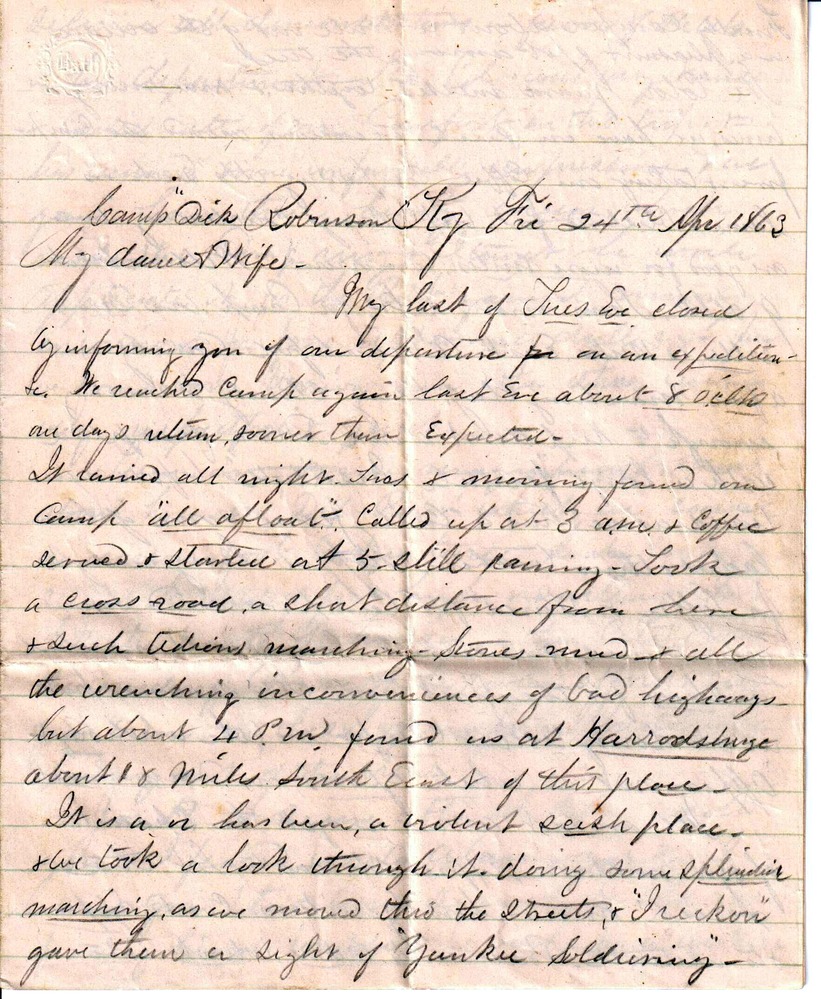 Camp "Dick Robinson" Ky Fri 24th Apr 1863
My dearest Wife -
My last of Tues Eve closed
by informing you of our departure on an expedition -
&c. We reached Camp again last Eve about 8 oclk
one days return, sooner than Expected -
It rained all night Tues & morning found our
Camp "all afloat". Called up at 3 am. & Coffee
served & started at 5. still raining - Took
a cross road, a short distance from here
& such tedious marching - Stones mud & all
the wrenching inconveniences of bad highways -
but about 4 P.m. found us at Harrodsburg
about 18 miles South East of this place -
It is a or has been, a violent secesh place -
& we took a look through it. doing some splendid
marching, as we moved thro the streets, & "I reckon"
gave them a sight of "Yankee Soldiering" -